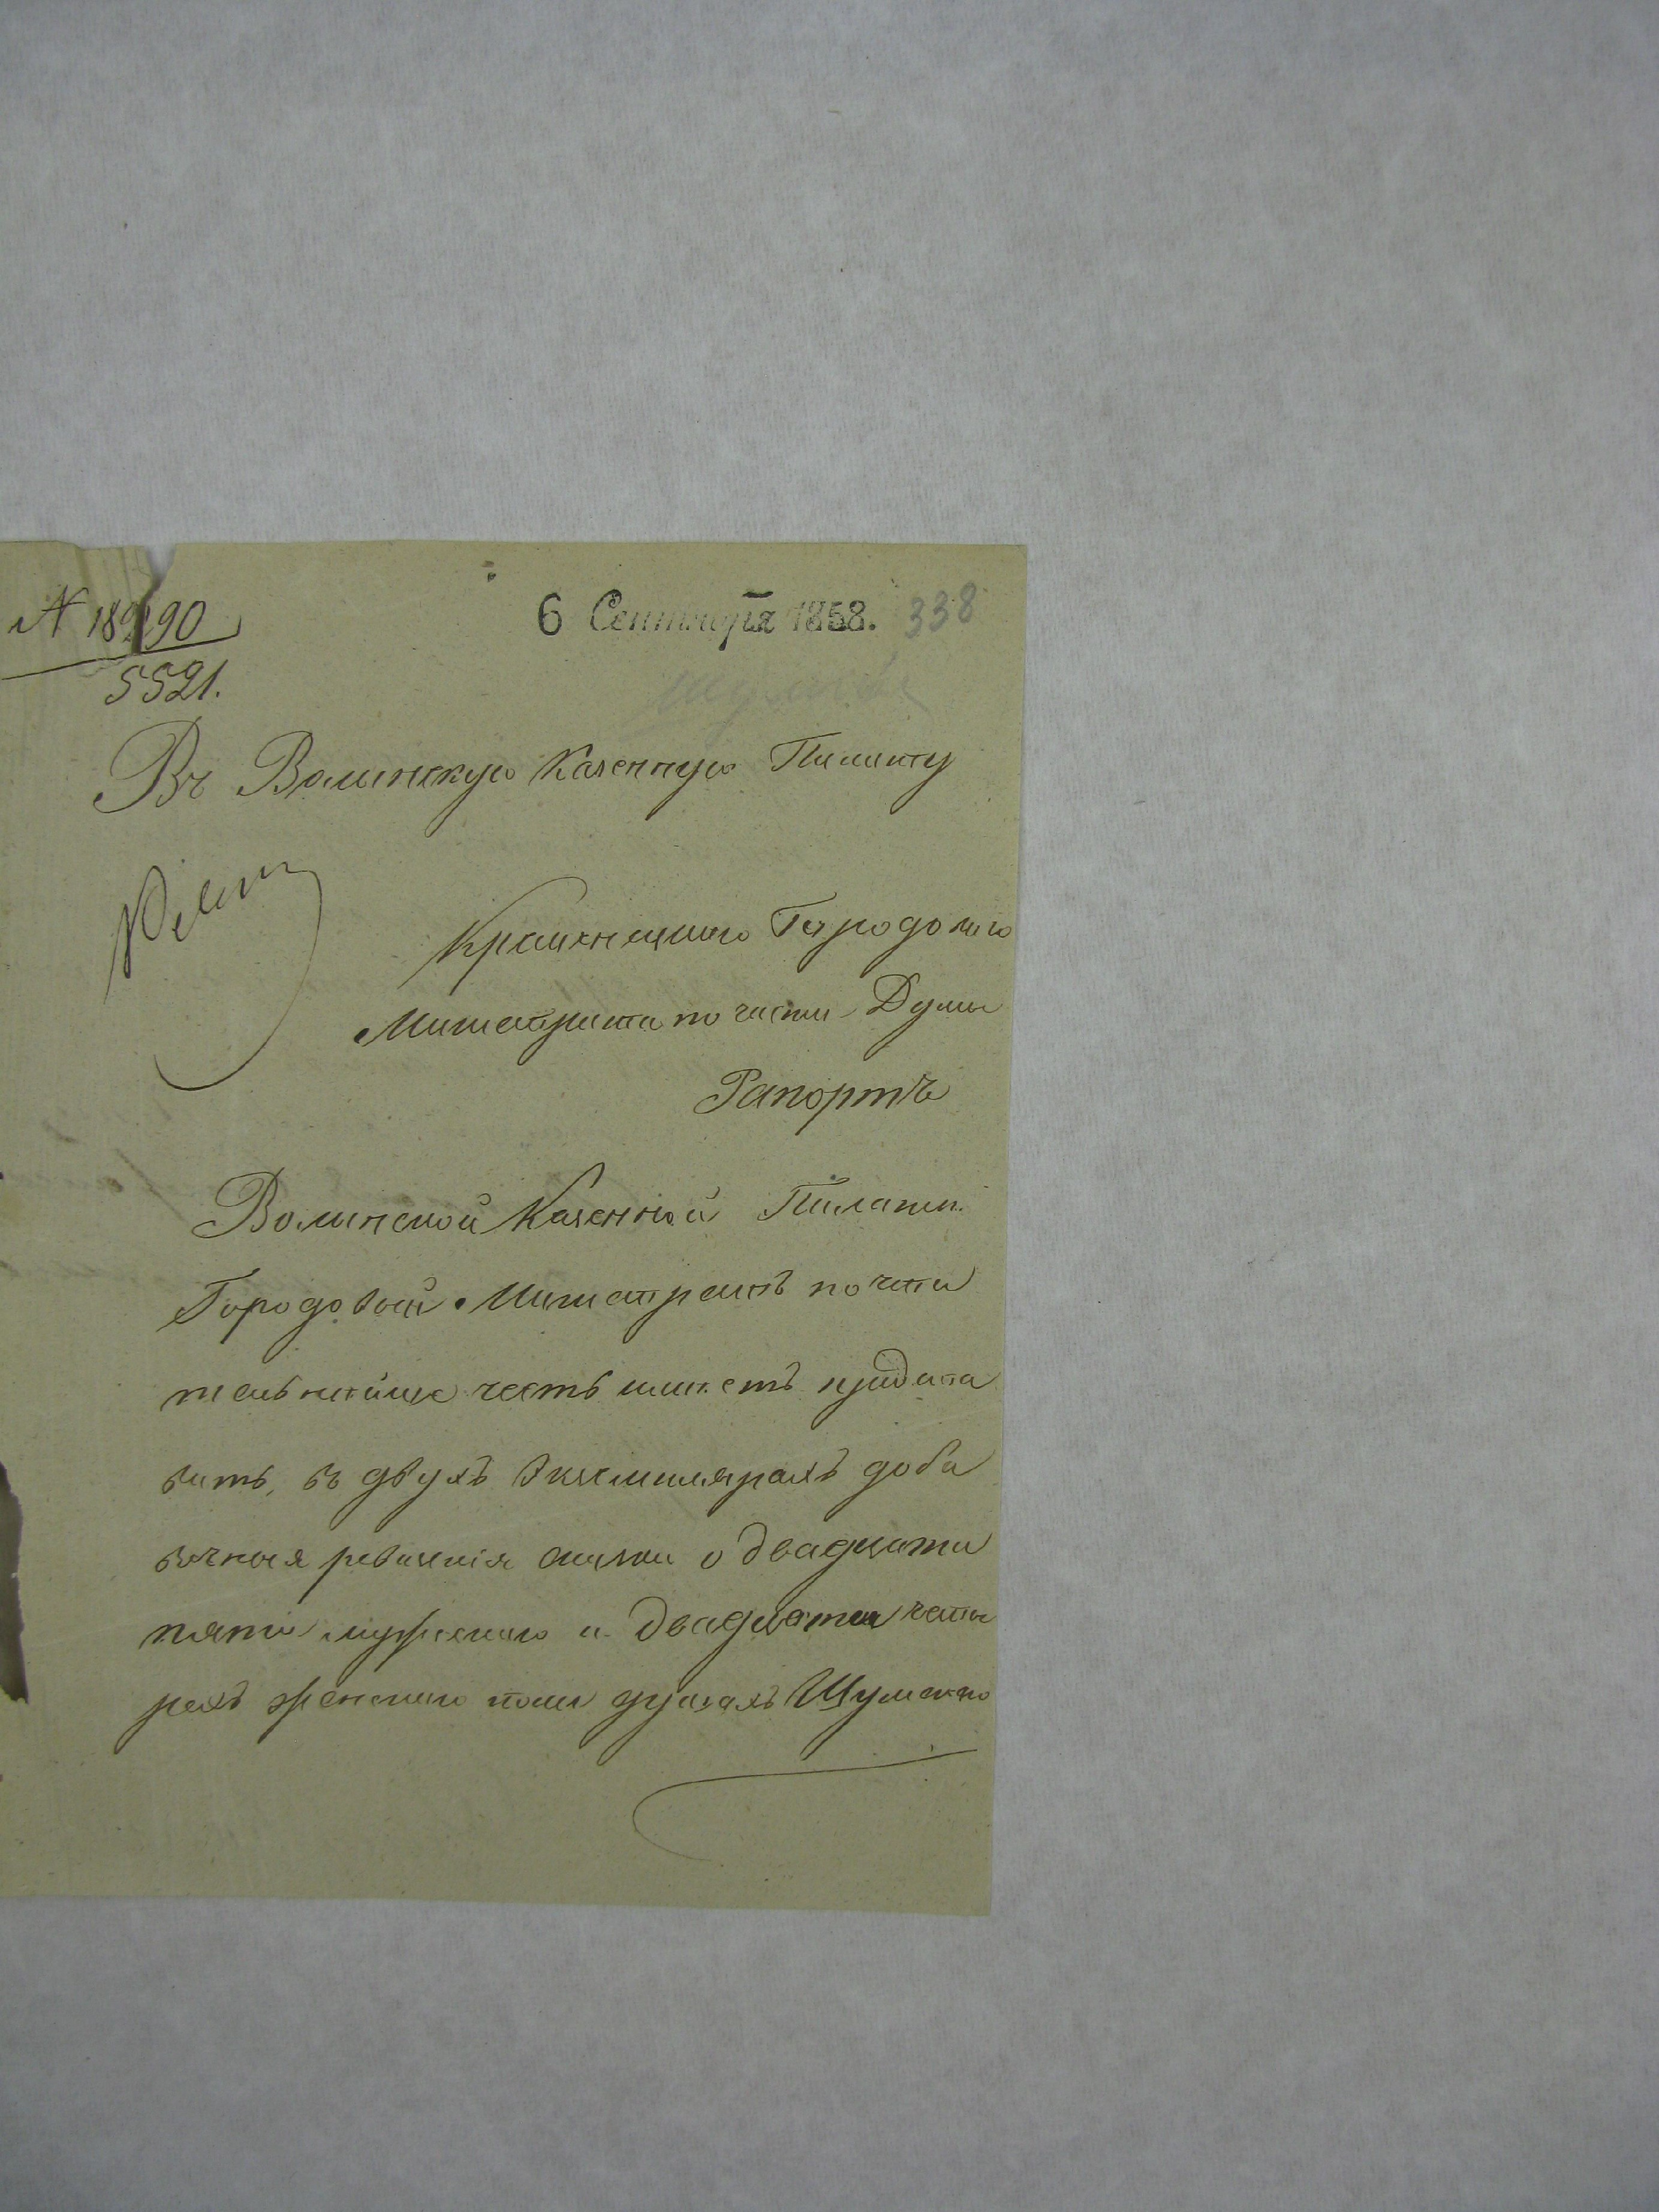 N 18990
5521.
6 Сентября 1858. 338
Въ Волынскую Казенную Палату
Кременецкаго Городоваго
Магистрата по части Думы
Рапортъ
Волынской Казенной Палаты
Городовой Магистратъ почти
тельнейше честь имеетъ предста
вить, въ двухъ экземплярахъ доба
вочныя ревизкія сказки о двадцати
пяти мужескаго и двадцати четы
рехъ женскаго пола душахъ Шумско